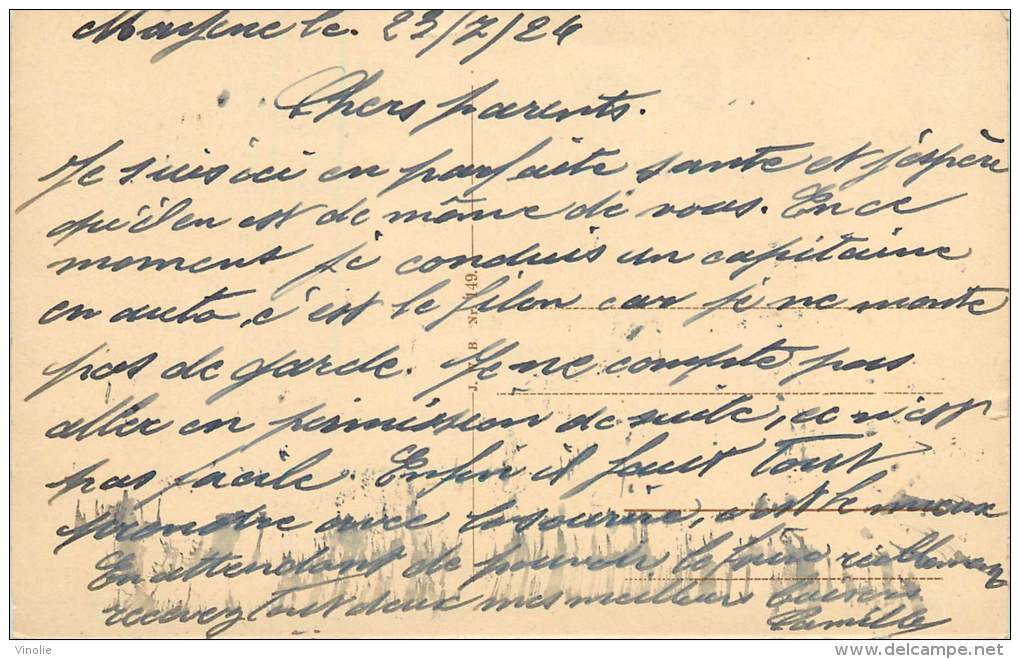 Mayence le. 23/7/24
Chers parents.
Je suis ici en parfaite santé et j'espère
qu'il en est de même de vous. En ce
moment je conduis un capitaine
en auto, c'est le filon car je ne monte
pas de garde. Je ne compte pas
aller en permission de suite, ce n'est
pas facile. Enfin il faut tout
prendre avec le sourire, c'est le mieux
En attendant de pouvoir le faire réellement
recevez tout deux mes meilleurs baisers
Camille
J. W. B. Nr. 149.
Vinolie
delcampe.net